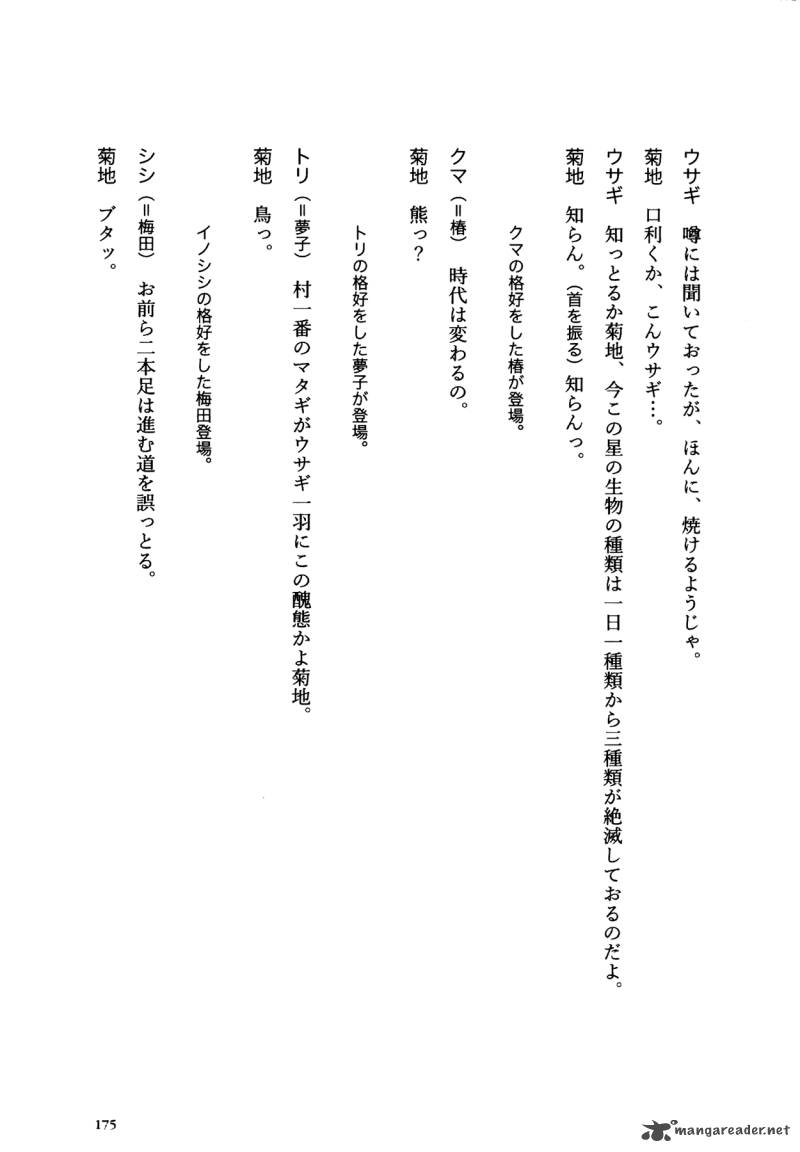 ウサギ　噂には聞いておったが、ほんに、焼けるようじゃ。
菊地　口利くか、こんウサギ…。
ウサギ　知っとるか菊地、今この星の生物の種類は一日一種類から三種類が絶滅しておるのだよ。
菊地　知らん。（首を振る）知らんっ。
クマの格好をした椿が登場。
クマ（＝椿）　時代は変わるの。
菊地　熊っ？
トリの格好をした夢子が登場。
トリ（＝夢子）　村一番のマタギがウサギ一羽にこの醜態かよ菊地。
菊地　鳥っ。
イノシシの格好をした梅田登場。
シシ（＝梅田）　お前ら二本足は進む道を誤っとる。
菊地　ブタッ。
175
mangareader.net